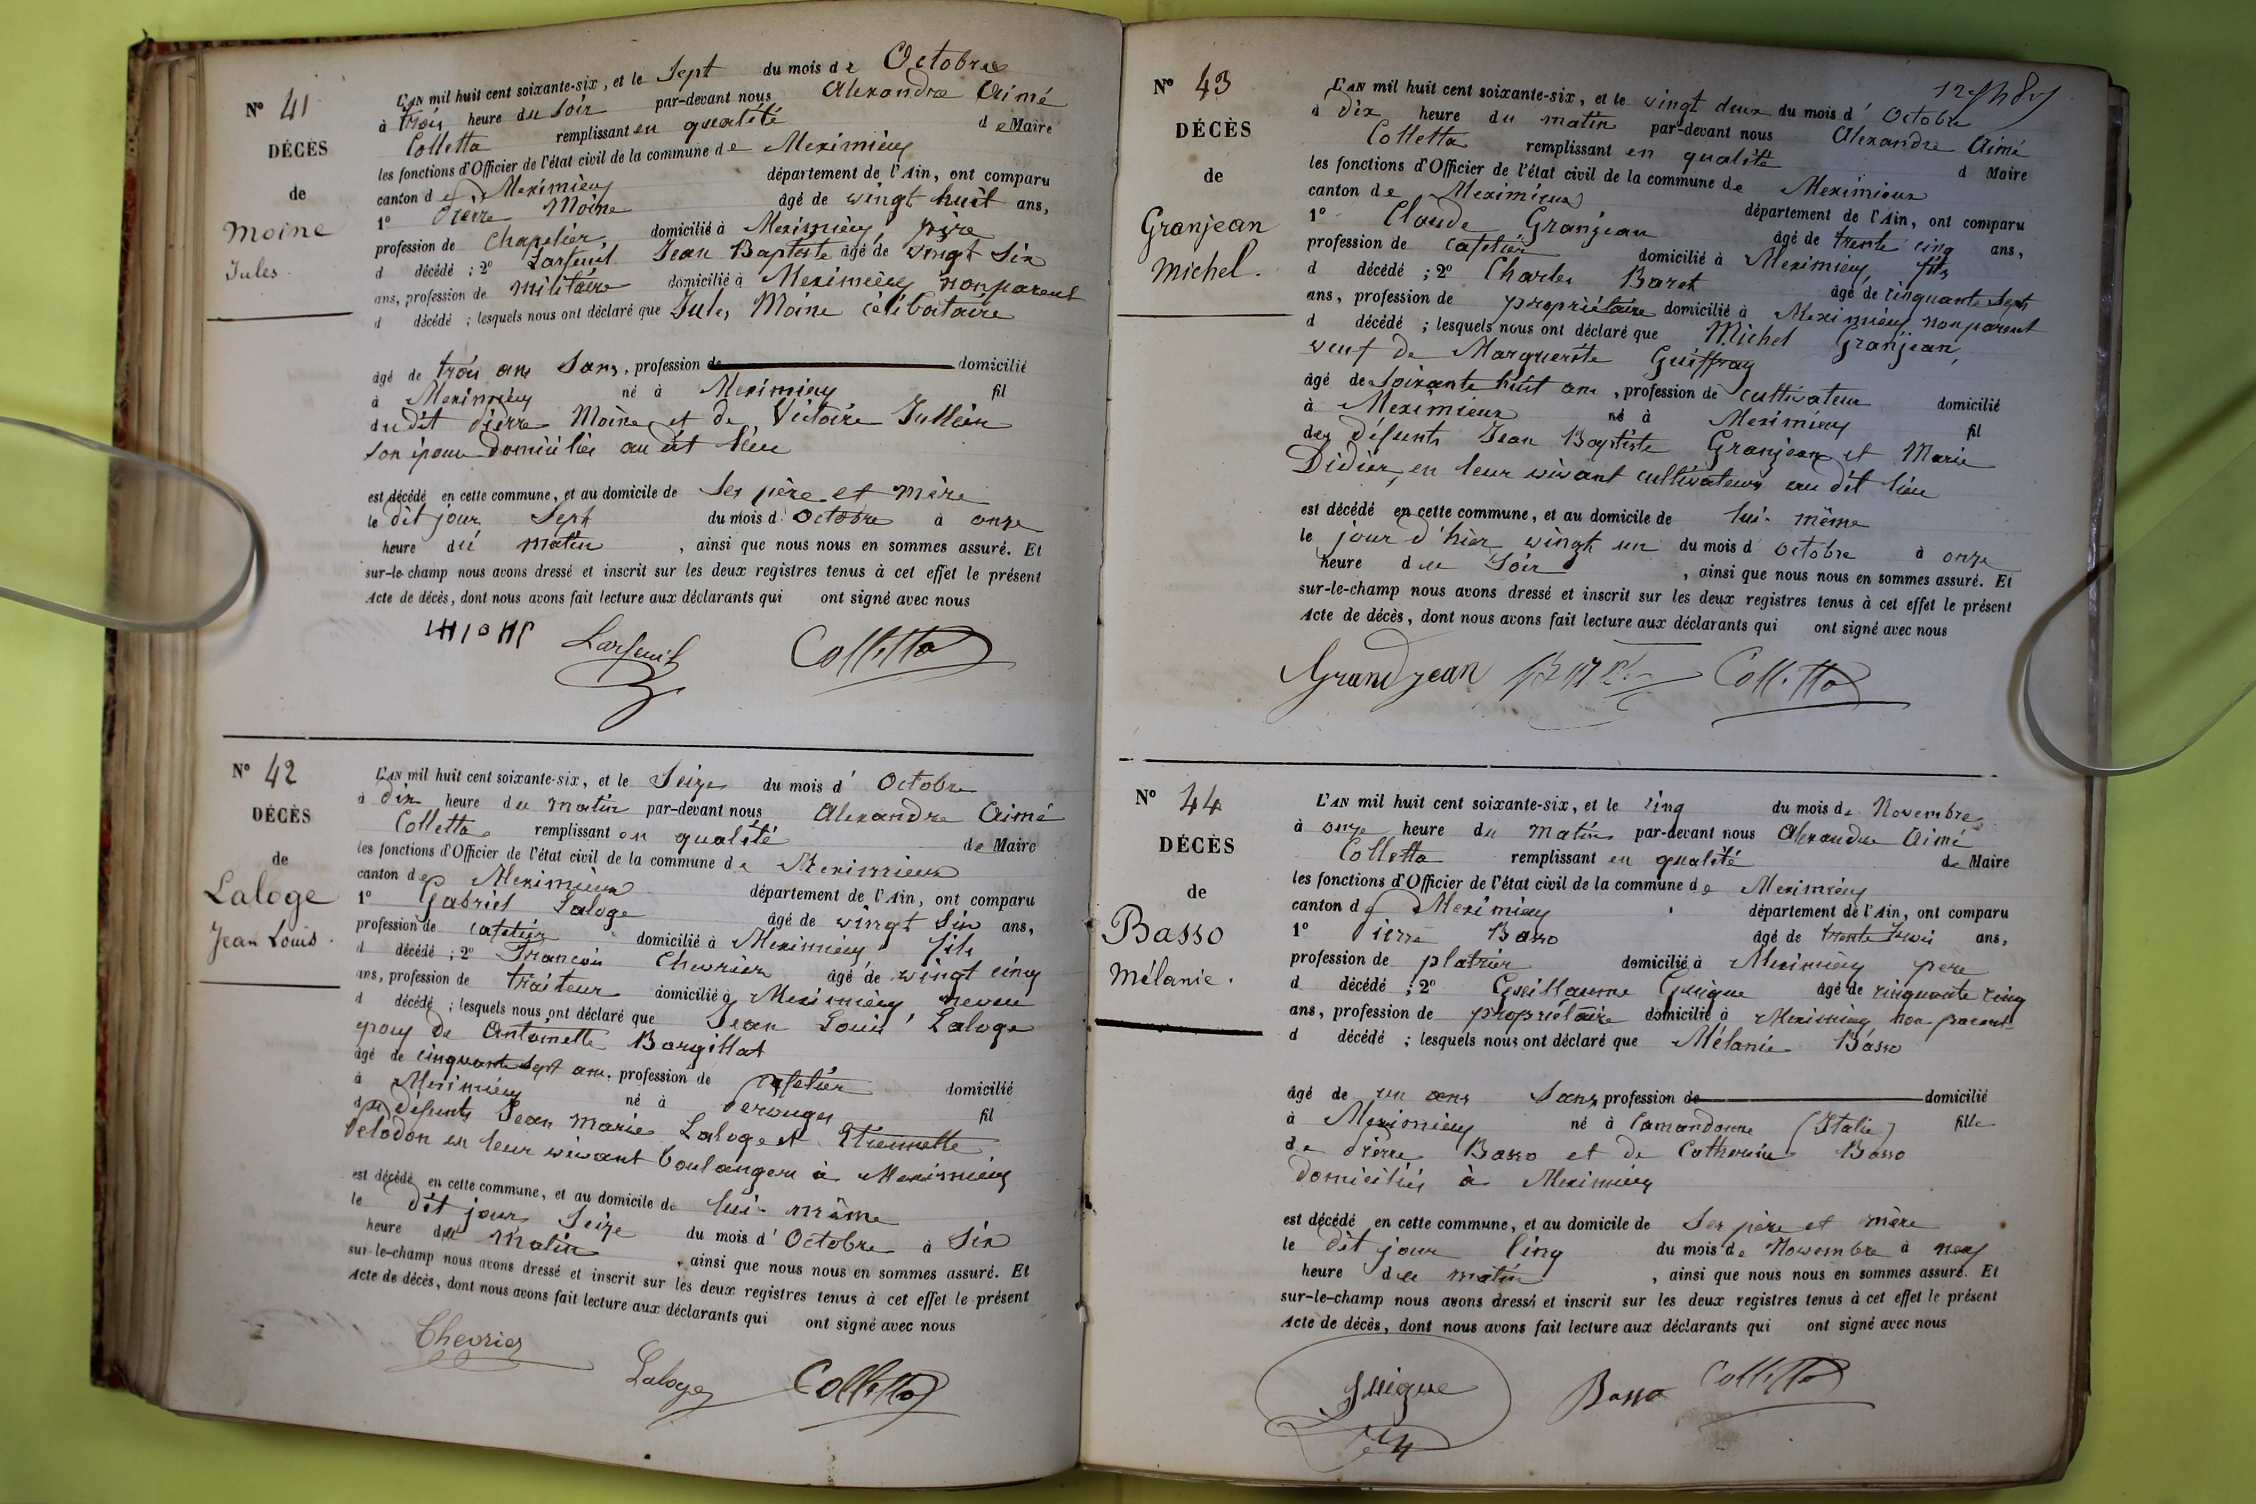 N° 41
DÉCÈS
de
Moine
Jules.
L'AN mil huit cent soixante-six, et le Sept du mois de Octobre
à trois heure du Soir par-devant nous Alexandre Aimé
Colletta remplissant en qualité de Maire
les fonctions d'Officier de l'état civil de la commune de Meximieux
canton de Meximieux département de l'Ain, ont comparu
1° Pierre Moine âgé de vingt huit ans,
profession de Chapelier domicilié à Meximieux père
d décédé ; 2° Larseuil Jean Baptiste âgé de vingt Six
ans, profession de militaire domicilié à Meximieux non parent
d décédé ; lesquels nous ont déclaré que Jules Moine célibataire
âgé de trois ans Sans, profession de domicilié
à Meximieux né à Meximieux fil
du dit Pierre Moine et de Victoire Jullien
Son épouse Domiciliés au dit lieu
est décédé en cette commune, et au domicile de Ses père et mère
le dit jour Sept du mois d'Octobre à onze
heure du matin , ainsi que nous nous en sommes assuré. Et
sur-le-champ nous avons dressé et inscrit sur les deux registres tenus à cet effet le présent
Acte de décès, dont nous avons fait lecture aux déclarants qui ont signé avec nous
Larseuil Colletta
N° 42
DÉCÈS
de
Laloge
Jean Louis.
L'AN mil huit cent soixante-six, et le Seize du mois d' Octobre
à dix heure du matin par-devant nous Alexandre Aimé
Colletta remplissant en qualité de Maire
les fonctions d'Officier de l'état civil de la commune de Meximieux
canton de Meximieux département de l'Ain, ont comparu
1° Gabriel Laloge âgé de vingt Six ans,
profession de cafetier domicilié à Meximieux fils
d décédé ; 2° François Chevrier âgé de vingt cinq
ans, profession de traiteur domicilié à Meximieux neveu
d décédé ; lesquels nous ont déclaré que Jean Louis Laloge
époux de Antoinette Bargillat
âgé de cinquante Sept ans, profession de cafetier domicilié
à Meximieux né à Perouges fil
des défunts Jean Marie Laloge et Etiennette
Pelodon en leur vivant boulangers à Meximieux
est décédé en cette commune, et au domicile de lui-même
le dit jour Seize du mois d' Octobre à Six
heure du matin , ainsi que nous nous en sommes assuré. Et
sur-le-champ nous avons dressé et inscrit sur les deux registres tenus à cet effet le présent
Acte de décès, dont nous avons fait lecture aux déclarants qui ont signé avec nous
Chevrier Laloge Colletta
N° 43
DÉCÈS
de
Granjean
Michel.
L'AN mil huit cent soixante-six, et le vingt deux du mois d' Octobre
à dix heure du matin par-devant nous Alexandre Aimé
Colletta remplissant en qualité d Maire
les fonctions d'Officier de l'état civil de la commune de Meximieux
canton de Meximieux département de l'Ain, ont comparu
1° Claude Granjean âgé de trente cinq ans,
profession de cafetier domicilié à Meximieux fils
d décédé ; 2° Charles Baret âgé de cinquante Sept
ans, profession de propriétaire domicilié à Meximieux non parent
d décédé ; lesquels nous ont déclaré que Michel Granjean,
veuf de Marguerite Guiffray
âgé de Soixante huit ans, profession de cultivateur domicilié
à Meximieux né à Meximieux fil
des défunts Jean Baptiste Granjean et Marie
Didier, en leur vivant cultivateurs au dit lieu
est décédé en cette commune, et au domicile de lui-même
le jour d'hier vingt un du mois d octobre à onze
heure du Soir , ainsi que nous nous en sommes assuré. Et
sur-le-champ nous avons dressé et inscrit sur les deux registres tenus à cet effet le présent
Acte de décès, dont nous avons fait lecture aux déclarants qui ont signé avec nous
Grandjean Colletta
N° 44
DÉCÈS
de
Basso
Mélanie.
L'AN mil huit cent soixante-six, et le Cinq du mois de Novembre
à onze heure du matin par-devant nous Alexandre Aimé
Colletta remplissant en qualité de Maire
les fonctions d'Officier de l'état civil de la commune de Meximieux
canton de Meximieux département de l'Ain, ont comparu
1° Pierre Basso âgé de trente trois ans,
profession de platrier domicilié à Meximieux pere
d décédé ; 2° Guillaume Guigue âgé de cinquante cinq
ans, profession de propriétaire domicilié à Meximieux non parent
d décédé ; lesquels nous ont déclaré que Mélanie Basso
âgé de un ans Sans profession de domicilié
à Meximieux né à Camandonne (Italie) fille
de Pierre Basso et de Catherine Basso
domiciliés à Meximieux
est décédé en cette commune, et au domicile de Ses père et mère
le dit jour Cinq du mois de Novembre à neuf
heure du matin , ainsi que nous nous en sommes assuré. Et
sur-le-champ nous avons dressé et inscrit sur les deux registres tenus à cet effet le présent
Acte de décès, dont nous avons fait lecture aux déclarants qui ont signé avec nous
Guigue Basso Colletta